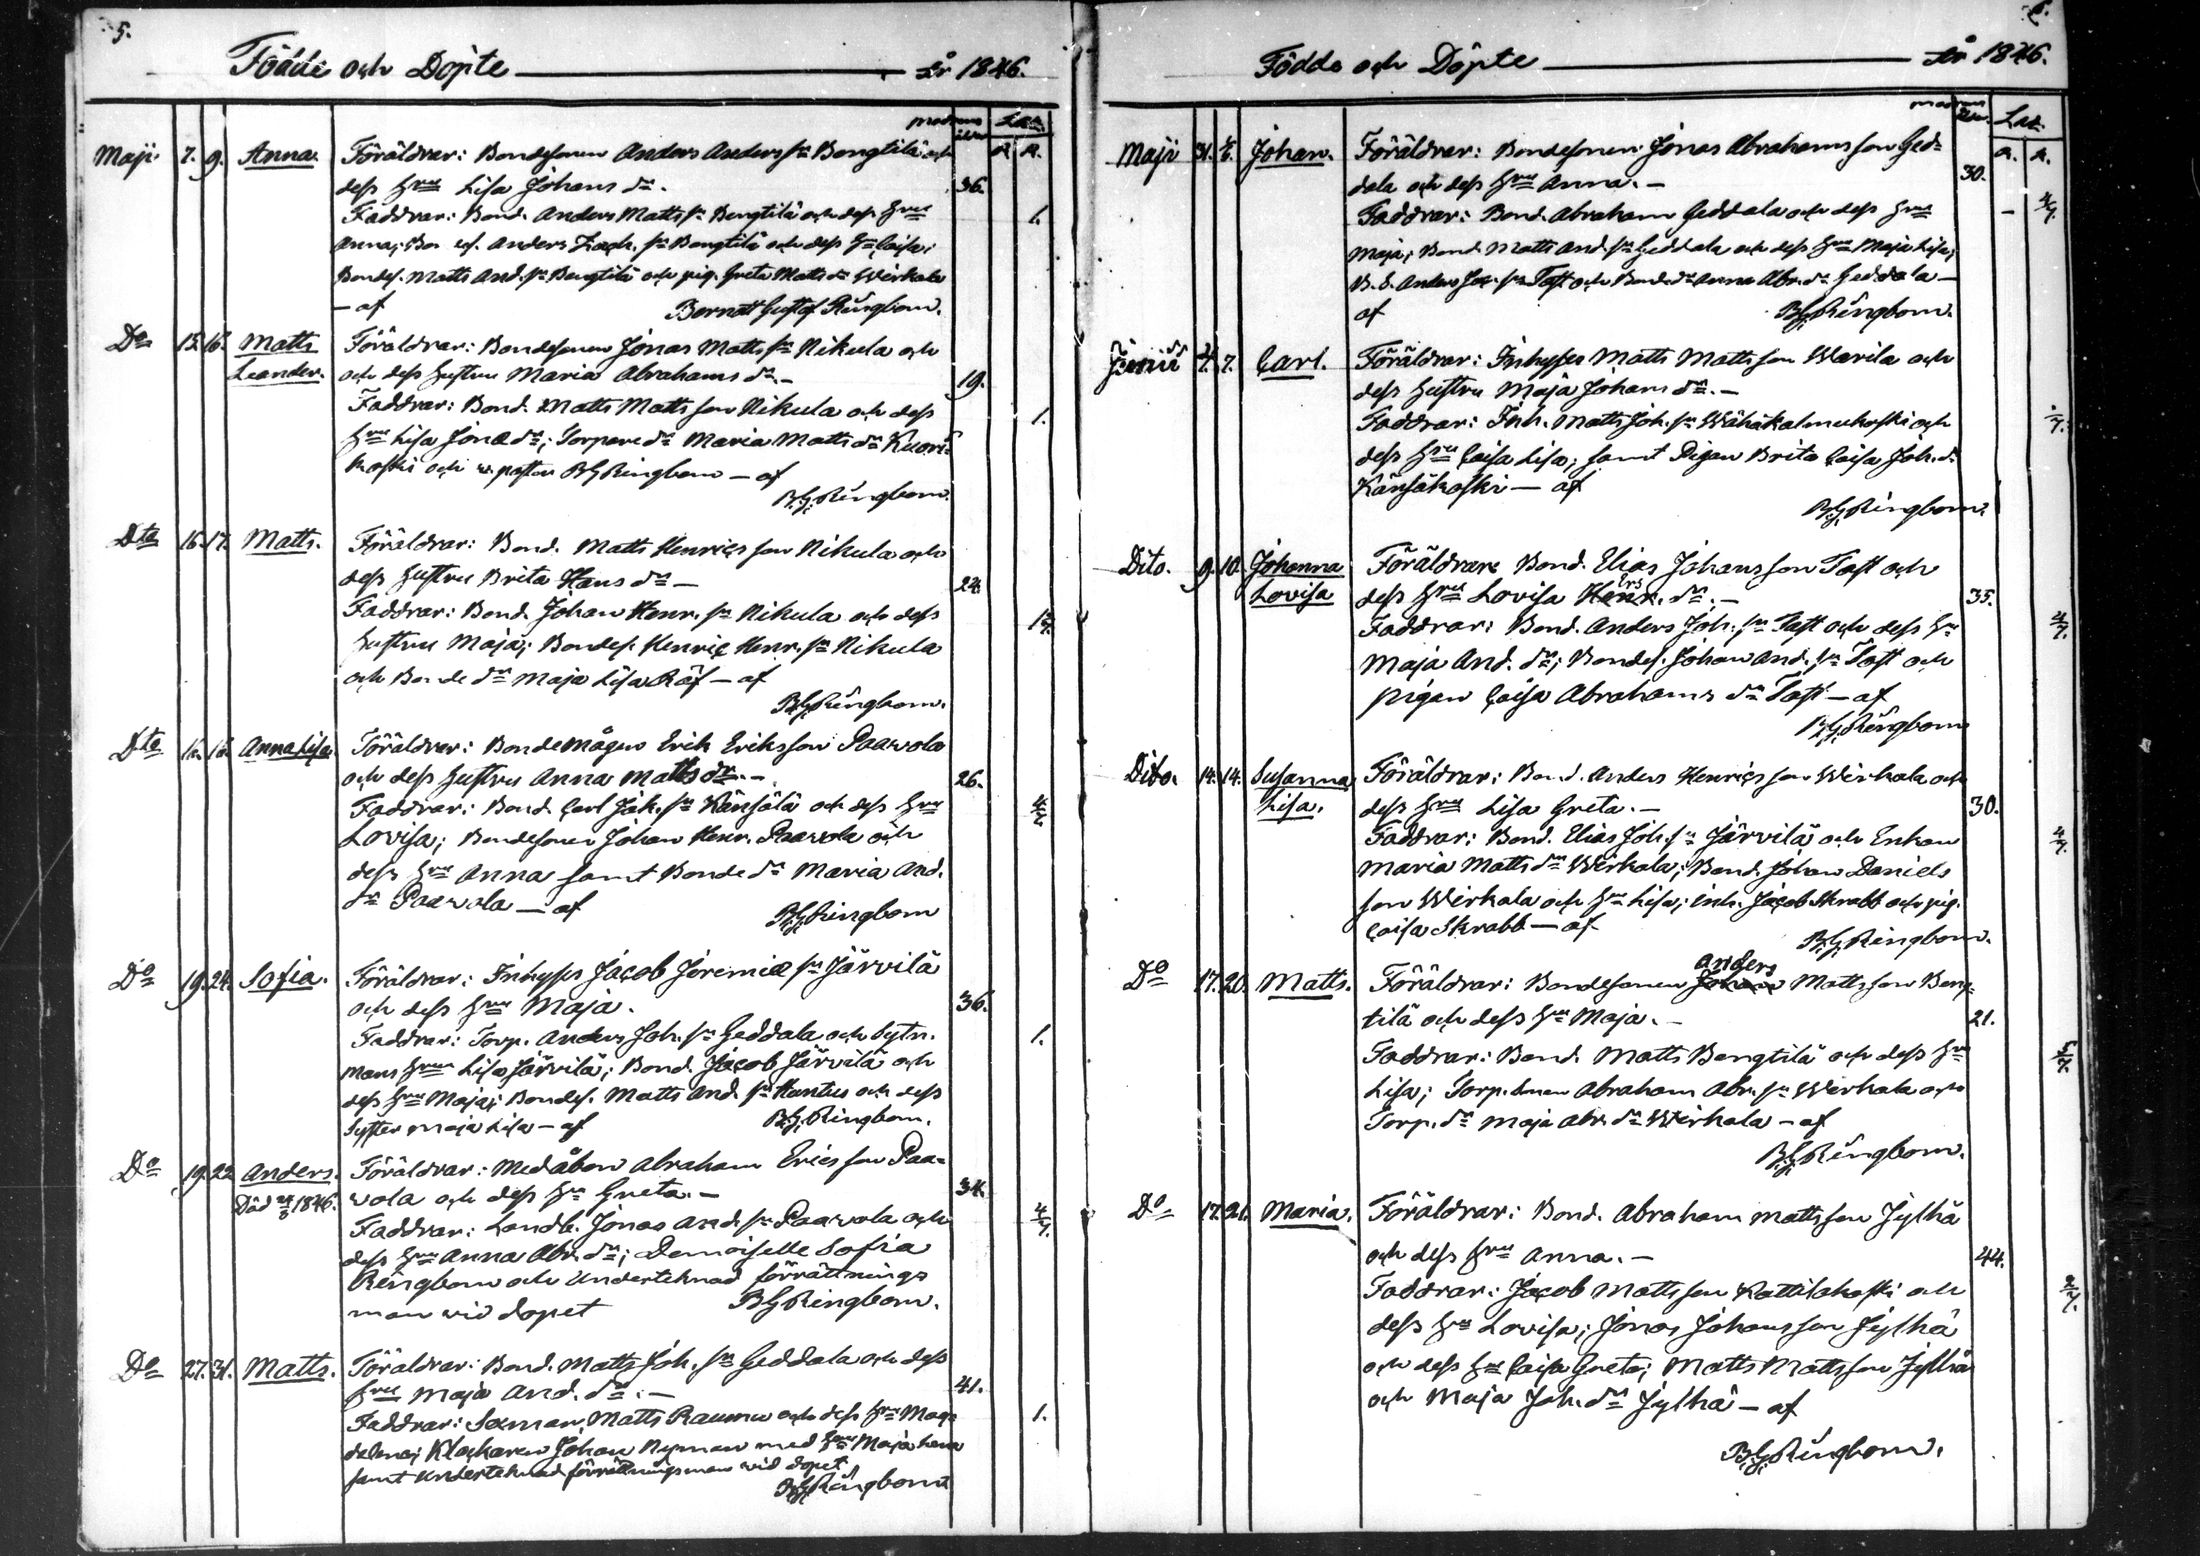 5.
Födde och Döpte — år 1846.
modrens ålder Las.
a. a.
Maji. 7. 9. Anna. Föräldrar: Bondesonen Anders Anders sn Bengtilä och
dess Hru Lisa Johans dr. 36.
Faddrar: Bond. Anders Matts sn Bengtilä och dess Hru 1.
Anna; Anders Zach. sn Bengtilä och dess H Caisa;
Bondes. Matts And. sn Bengtilä och pig. Greta Matts dr Wirkala
— af Bernatt Gustaf Ringbom.
Do 15. 16. Matts Föräldrar: Bondesonen Jonas Matts sn Nikula och
Leander. och dess Hustru Maria Abrahams dr. — 19.
Faddrar: Bond. Matts Matts son Nikula och dess 1.
Hru Lisa Jonæ dr; Torpare dr Maria Matts dr Kuori-
koski och v. pastor B G Ringbom — af
B. G. Ringbom.
Dto 16. 17. Matts. Föräldrar: Bond. Matts Henrics son Nikula och
dess Hustru Brita Hans dr — 24.
Faddrar: Bond. Johan Henr. sn Nikula och dess
Hustru Maja; Bondes. Henric Henr. sn Nikula
och Bonde dr Maja Lisa Räf — af
B. G. Ringbom.
Dto 16. 16. Anna Lisa. Föräldrar: Bondemågen Erik Eriksson Paavola
och dess Hustru Anna Matts dr. — 26.
Faddrar: Bond. Carl Jak. sn Känsälä och dess Hru 4/7.
Lovisa; Bondesonen Johan Henr. Paavola och
dess Hru Anna samt Bonde dr Maria And.
dr Paavola — af B. G. Ringbom
Do 19. 24. Sofia. Föräldrar: Inhyses Jacob Jeremiæ sn Järvilä
och dess Hru Maja. 36.
Faddrar: Torp. Anders Joh. sn Geddala och bytn.
mans Hru Lisa Järvilä; Bond. Jacob Järvilä och 1.
dess Hru Maja; Bondes. Matts And. sn Huntus och dess
Syster Maja Lisa — af B. G. Ringbom.
Do 19. 22. Anders. Föräldrar: Medåbon Abraham Erics son Paa-
Död 1846. vola och dess Hru Greta. — 34.
Faddrar: Landb. Jonas And. sn Paavola och 4/7.
dess Hru Anna Abr. dr; Demoiselle Sofia
Ringbom och Undertecknad förrättnings
man vid dopet B G Ringbom.
Do 27. 31. Matts. Föräldrar: Bond. Matts Joh. sn Geddala och dess
Hru Maja And. dr. — 41.
Faddrar: Sexman Matts Raumu och dess Hru Mag- 1.
dalena; Klockaren Johan Nyman med Hru Maja Lena
samt Undertecknad förrättningsman vid dopet
B. G. Ringbom
6.
Födde och Döpte — år 1846.
modrens ålder. Las.
a. a.
Maji 31. 1/6. Johan. Föräldrar: Bondesonen Jonas Abrahamsson Ged-
dala och dess Hru Anna. — 30.
Faddrar: Bond. Abraham Geddala och dess Hru — 4/7.
Maja; Bond. Matts And. sn Geddala och dess Hru Maja Lisa;
B. S. Anders Jac. sn Tast och Bonde dr Anna Abr. dr Geddala —
af B. G. Ringbom.
Junii 7. Carl. Föräldrar: Inhyses Matts Mattsson Warila och
dess Hustru Maja Johans dr. —
Faddrar: Inh. Matts Joh. sn Wähäkalmukoski och
dess Hru Caisa Lisa; samt Pigan Brita Caisa Joh. d.
Känsäkoski — af
B. G. Ringbom.
Dito. 9. 10. Johanna Föräldrare Bond. Elias Johansson Tast och
Lovisa dess Hru Lovisa Ers. dr. — 35.
Faddrar: Bond. Anders Joh. sn Tast och dess Hru 4/7.
Maja And. dr; Bondes. Johan And. sn Tast och
pigan Caisa Abrahams dr Tast — af
B. G. Ringbom
Dito. 14. 14. Susanna Föräldrar: Bond. Anders Henrics son Wirkala och
Lisa. dess Hru Lisa Greta. — 30.
Faddrar: Bond. Elias Joh. sn Järvilä och Enkan 4/7.
Maria Matts dr Wirkala; Bond. Johan Daniels
son Wirkala och Hru Lisa; inh. Jacob Skrabb och pig.
Caisa Skrabb — af B. G. Ringbom.
Do 17. 20. Matts. Föräldrar: Bondesonen Johan Anders Mattsson Beng-
tilä och dess Hru Maja. — 21.
Faddrar: Bond. Matts Bengtilä och dess Hru 5/7.
Lisa; Torp. sonen Abraham Abr. sn Wirkala och
Torp. dr Maja Abr. dr Wirkala — af
B. G. Ringbom.
Do 17. 21. Maria. Föräldrar: Bond. Abraham Mattsson Jylhä
och dess Hru Anna. — 44.
Faddrar: Jacob Mattsson Kattilakoski och 2/7.
dess Hru Lovisa; Jonas Johansson Jylhä
och dess Hru Caisa Greta; Matts Mattsson Jylhä
och Maja Joh. dr Jylhä — af
B. G. Ringbom.